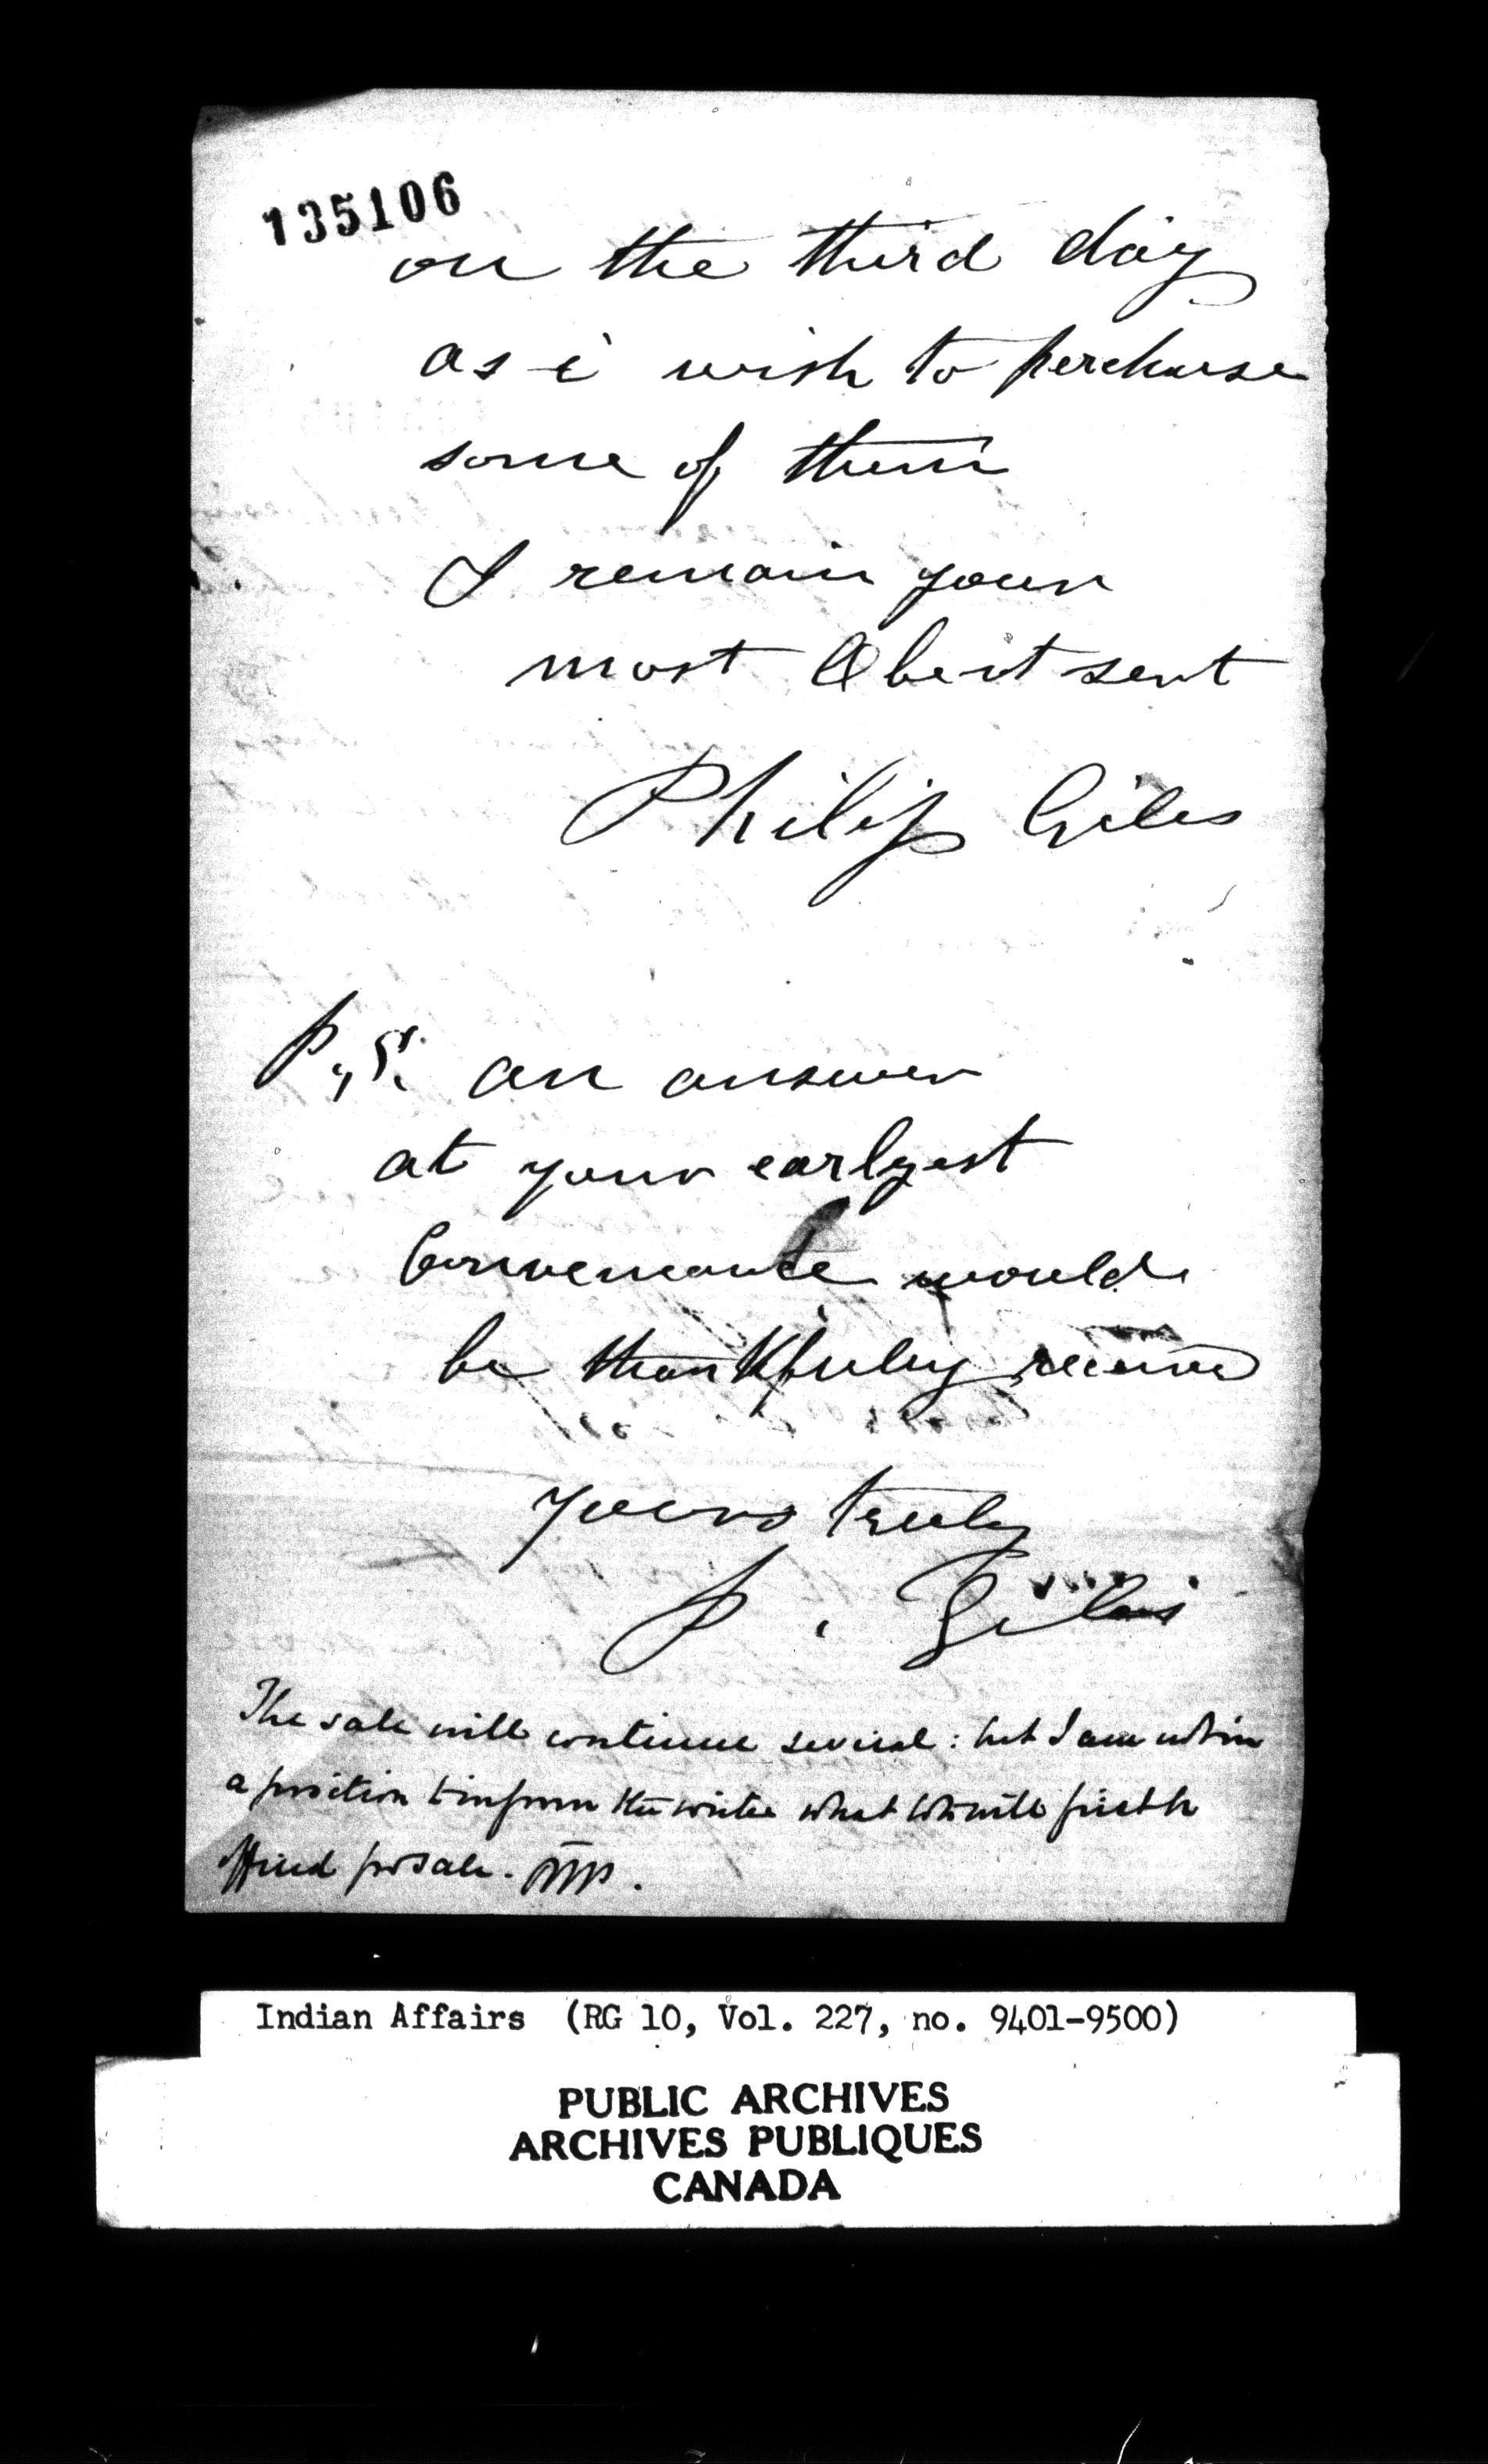 135106
on the third day
as i wish to perchase
some of them
I remain your
most Obent sent
Philip Giles
P.S. an answer
at your earlyest
Conveneance would
be thankfuly receive
yours truly
P. Giles
The sale will continue several : but I am not in
a position to inform the writer what lots will first be
offered for sale.
Indian Affairs (RG 10, Vol. 227, no. 9401-9500)
PUBLIC ARCHIVES
ARCHIVES PUBLIQUES
CANADA